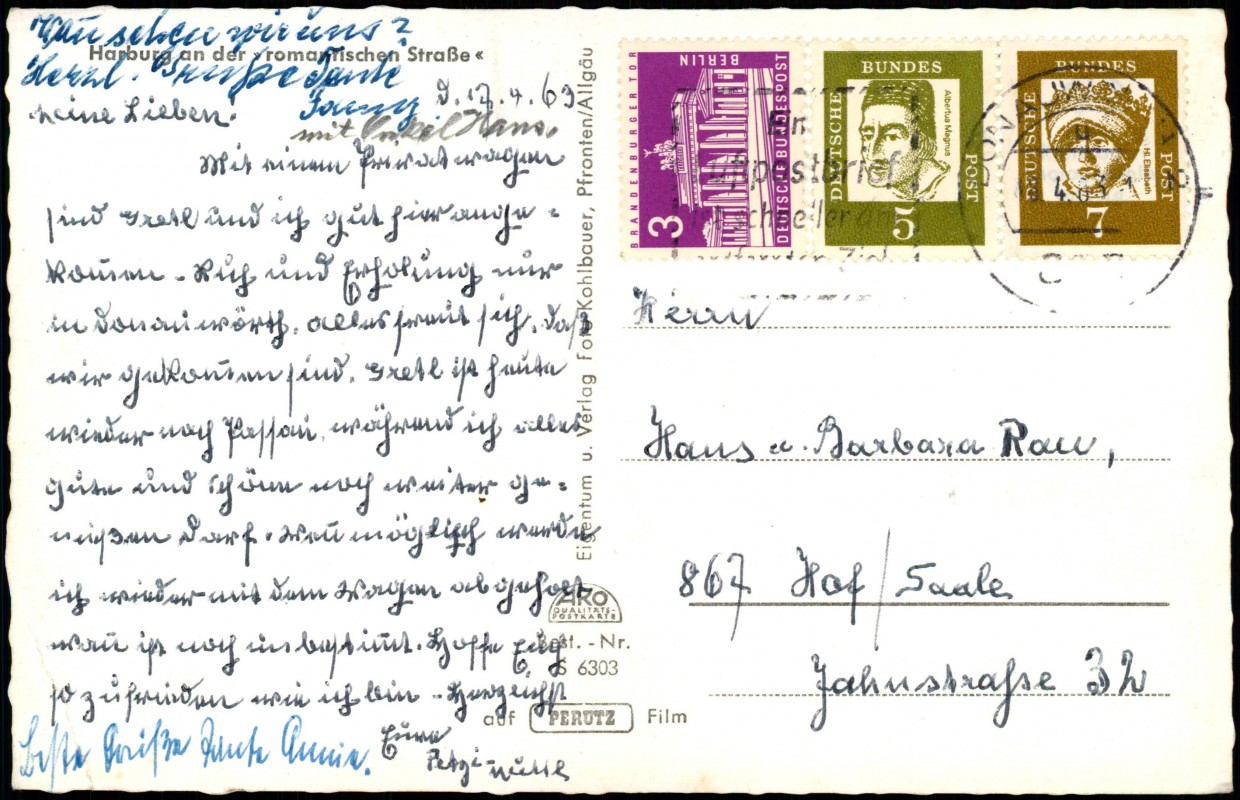 Wann sehen wir uns?
Harburg an der »romantischen Straße«
Herzl. Grüße Tante
Fanny
mit Onkel Hans.
D. 17.4.63
Meine Lieben!
Mit einem Privatwagen
sind Gretl und ich gut hier ange-
kommen. Ruh und Erholung nur
in Donauwörth. Alles freut sich, daß
wir gekommen sind. Gretl ist heute
wieder nach Passau, während ich alles
gute und schöne noch weiter ge-
nießen darf. Wenn möglich werde
ich wieder mit dem Wagen abgeholt
wann ist noch unbestimmt. Hoffe Euch
so zufrieden wie ich bin. Herzlichst
Eure
Beste Grüße Tante Annie.
Eigentum u. Verlag Foto-Kohlbauer, Pfronten/Allgäu
AKO
QUALITÄTS-
POSTKARTE
Best.-Nr.
S 6303
auf PERUTZ Film
BRANDENBURGER TOR
3
BERLIN
DEUTSCHE BUNDESPOST
DEUTSCHE
BUNDES
POST
Albertus Magnus
5
DEUTSCHE
BUNDES
POST
Hl. Elisabeth
7
Ein
Luftpostbrief
ist schneller am
entfernten Ziel
Herrn
Hans u. Barbara Rau,
867 Hof/Saale
Jahnstraße 32